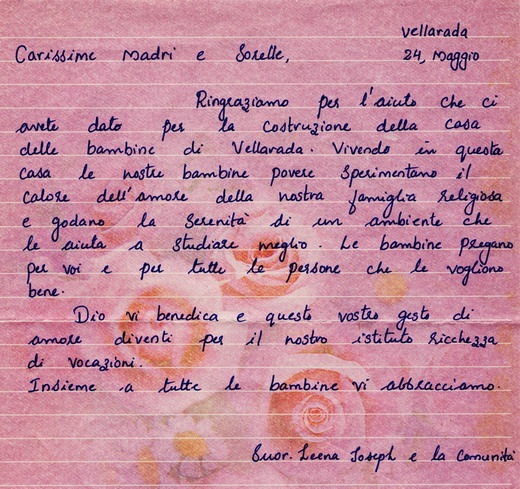 Vellarada
Carissime Madri e Sorelle, 24, Maggio
Ringraziamo per l'aiuto che ci
avete dato per la costruzione della casa
delle bambine di Vellarada. Vivendo in questa
casa le nostre bambine povere sperimentano il
calore dell'amore della nostra famiglia religiosa
e godano la serenità di un ambiente che
le aiuta a studiare meglio. Le bambine pregano
per voi e per tutte le persone che le vogliono
bene.
Dio vi benedica e questo vostro gesto di
amore diventi per il nostro istituto ricchezza
di vocazioni.
Insieme a tutte le bambine vi abbracciamo.
Suor. Leena Joseph e la comunità